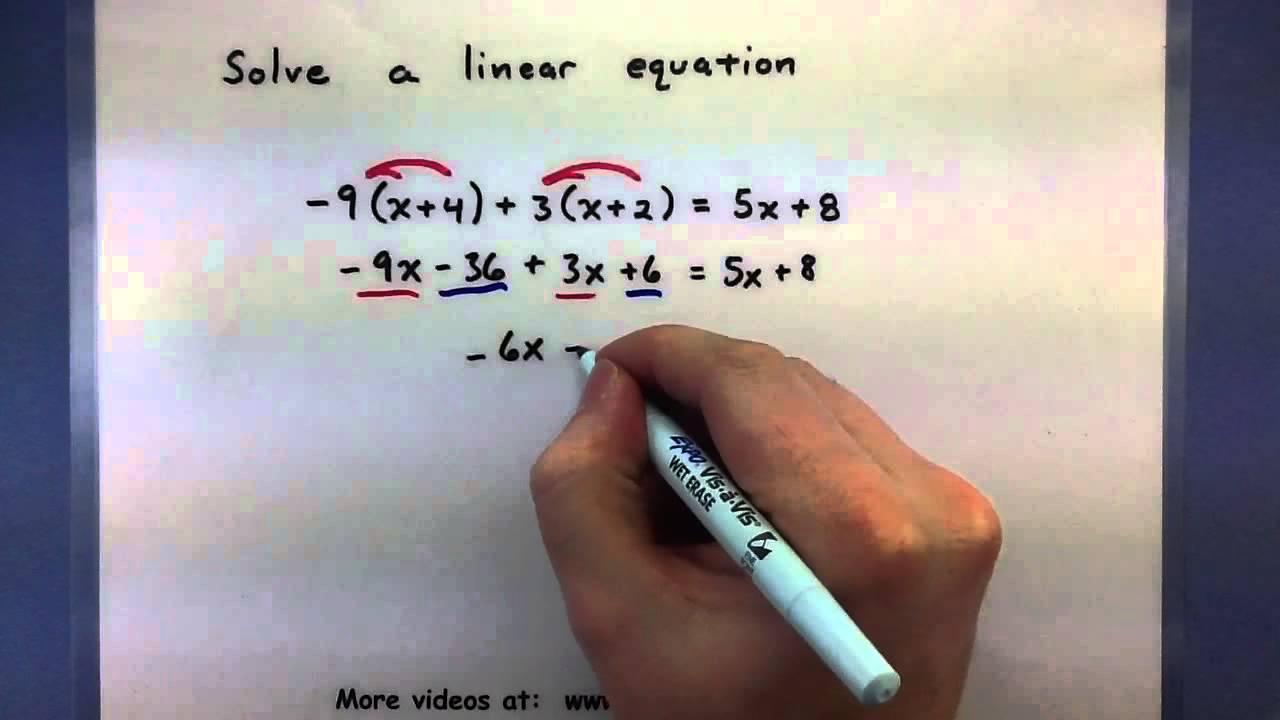 Solve a linear equation
-9(x+4)+3(x+2) = 5x+8
-9x-36+3x+6 = 5x+8
-6x -
EXPO Vis-à-Vis
WET ERASE
More videos at: www